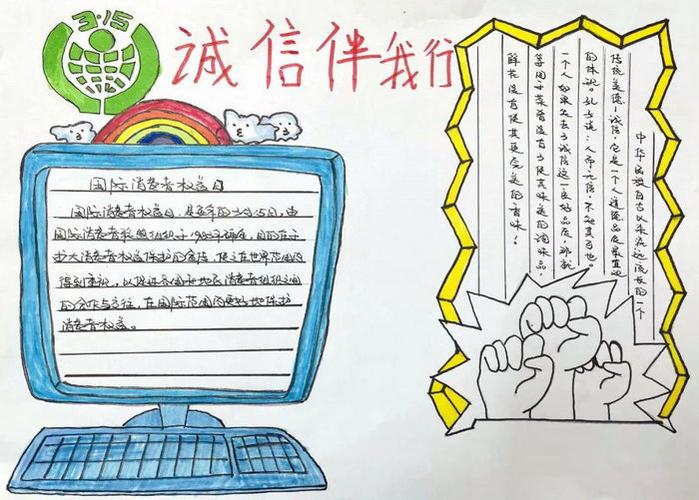 3·15
诚信伴我行
国际消费者权益日
国际消费者权益日,是每年的3月15日,由
国际消费者联盟组织于1983年确定,目的在于
扩大消费者权益保护的宣传,使之在世界范围内
得到重视,以促进各国和地区消费者组织之间
的合作与交往,在国际范围内更好地保护
消费者权益。
中华民族自古以来源远流长的一个
传统美德!诚信,它是一个人道德品质最直观
的体现。孔子说:人而无信,不知其可也。
一个人如果失去了诚信这一良好品质,那就
等同于菜肴没有了使其味美的调味品,
鲜花没有使其更完美的香味!